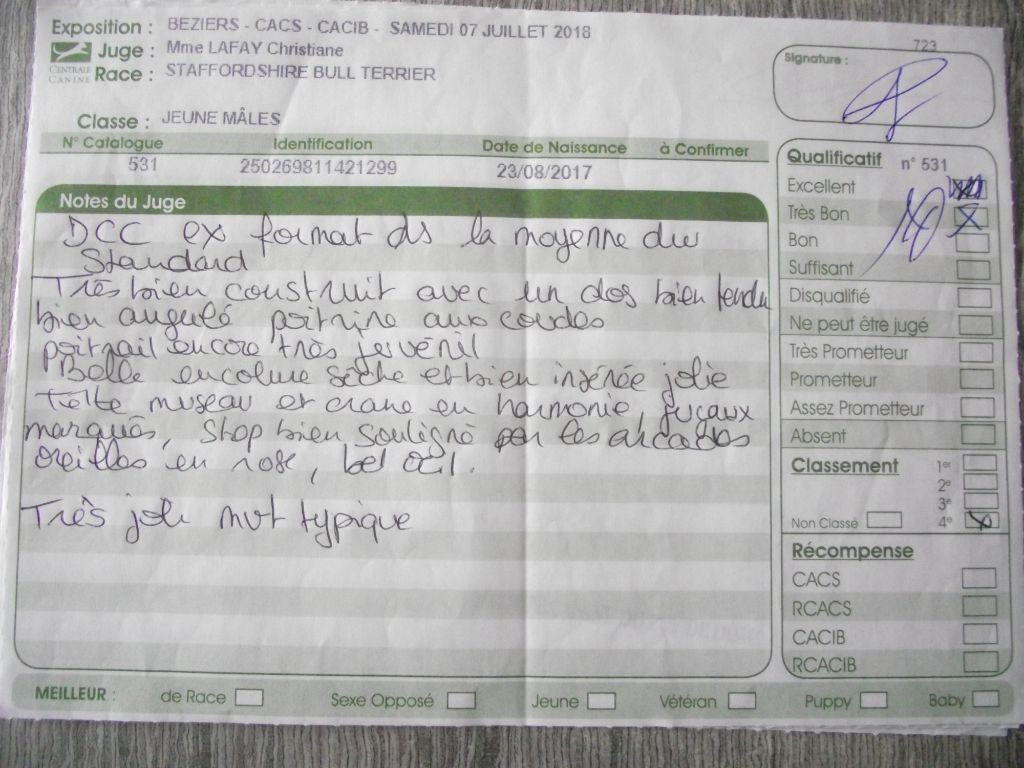 Exposition : BEZIERS - CACS - CACIB - SAMEDI 07 JUILLET 2018
Juge : Mme LAFAY Christiane
CENTRALE CANINE
Race : STAFFORDSHIRE BULL TERRIER
Classe : JEUNE MÂLES
723
Signature :
N° Catalogue Identification Date de Naissance à Confirmer
531 250269811421299 23/08/2017
Notes du Juge
DCC ex format ds la moyenne du
Standard
Très bien construit avec un dos bien tendu
bien angulé poitrine aux coudes
poitrail encore très juvénil
Belle encolure sèche et bien insérée jolie
tête museau et crane en harmonie,
marqués, Stop bien souligné par les arcades
oreilles en rose, bel oeil.
Très joli mvt typique
Qualificatif n° 531
Excellent
Très Bon X
Bon
Suffisant
Disqualifié
Ne peut être jugé
Très Prometteur
Prometteur
Assez Prometteur
Absent
Classement 1er
2e
3e
Non Classé 4e X
Récompense
CACS
RCACS
CACIB
RCACIB
MEILLEUR : de Race Sexe Opposé Jeune Vétéran Puppy Baby